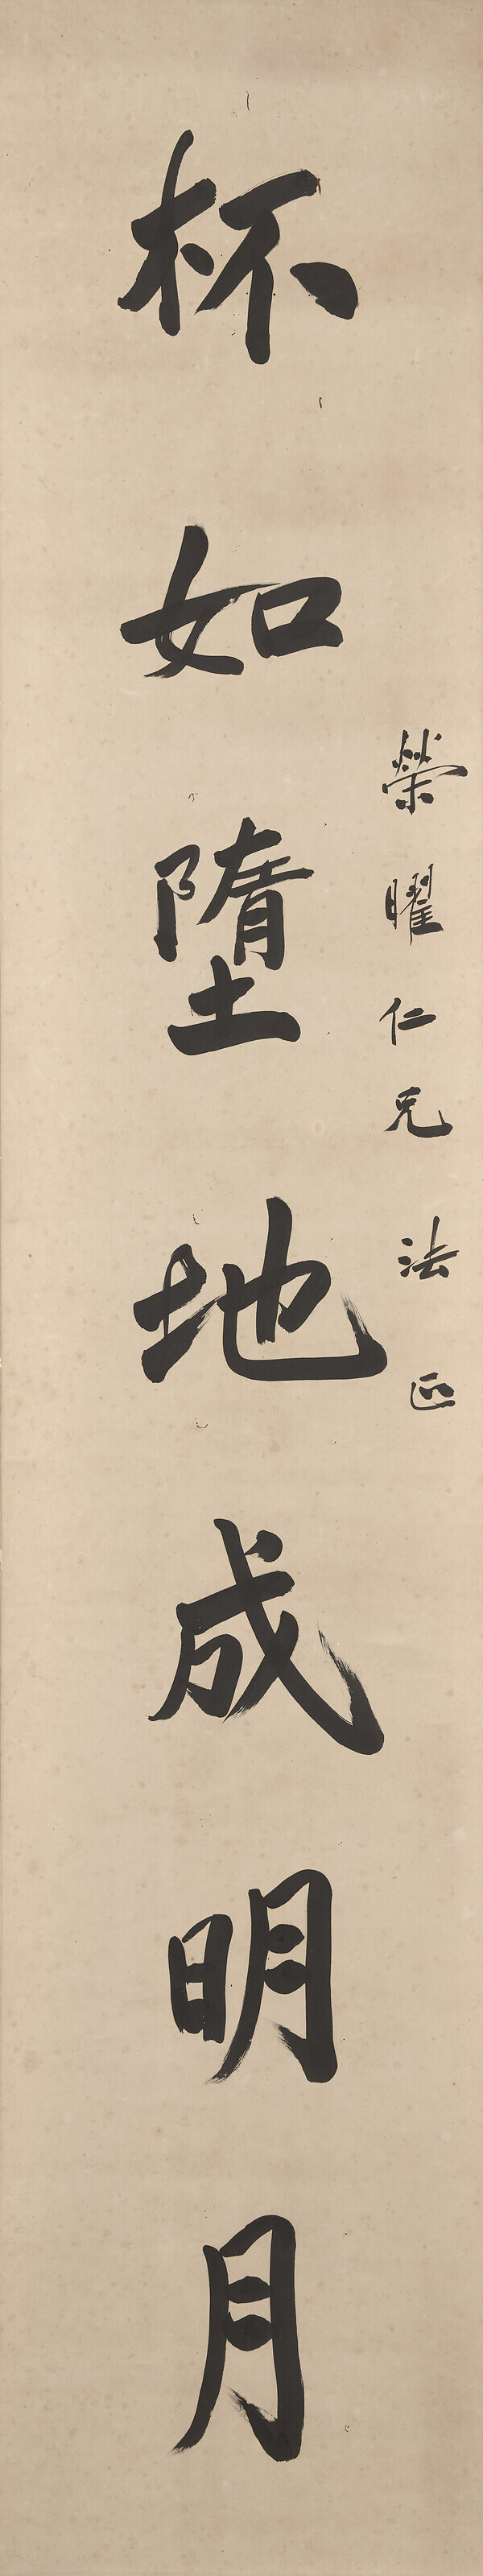 榮曜仁兄法正
杯如墮地成明月